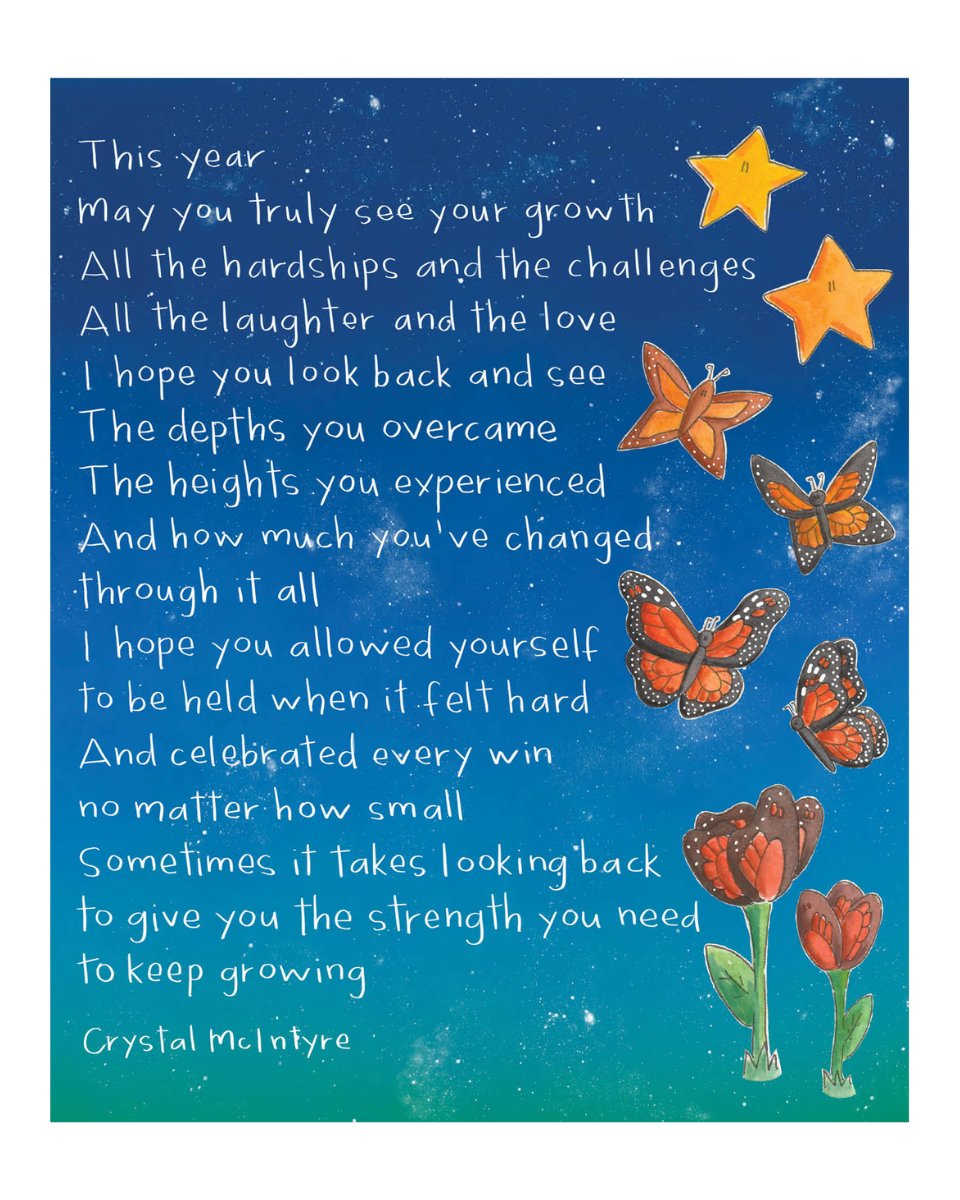 This year
May you truly see your growth
All the hardships and the challenges
All the laughter and the love
I hope you look back and see
The depths you overcame
The heights you experienced
And how much you've changed
through it all
I hope you allowed yourself
to be held when it felt hard
And celebrated every win
no matter how small
Sometimes it takes looking back
to give you the strength you need
to keep growing
Crystal McIntyre